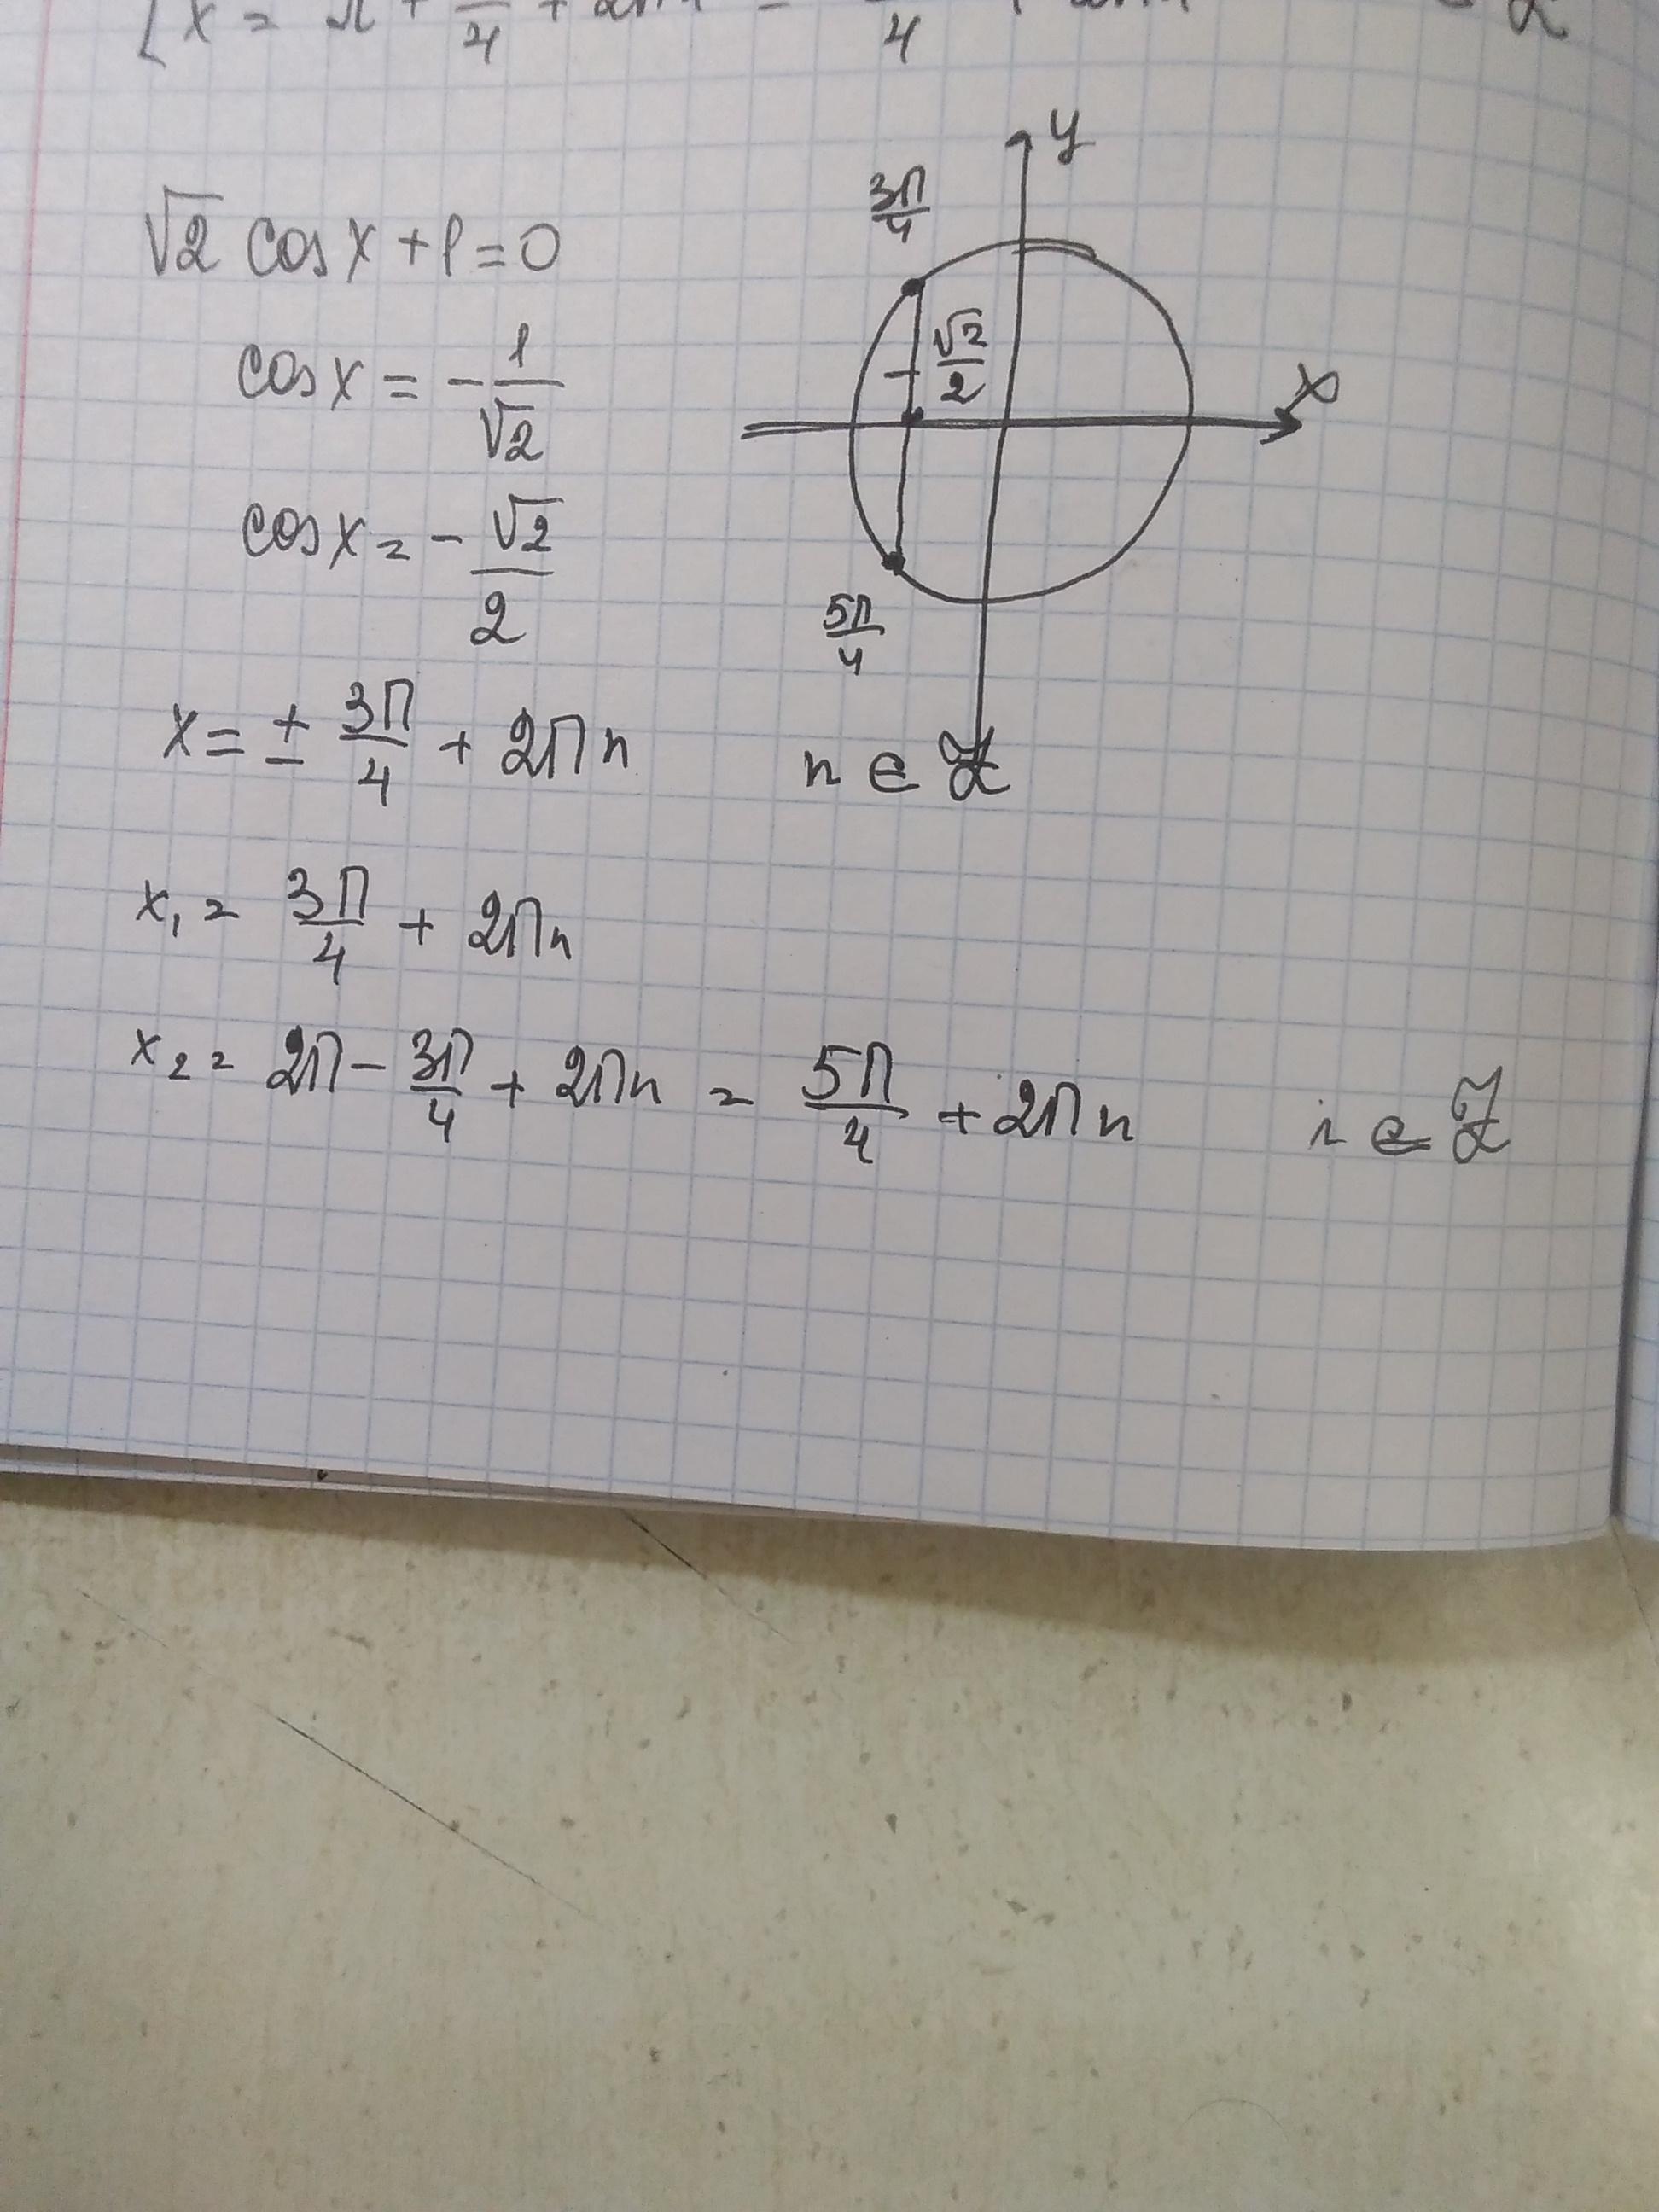 [ x = π + π/4 + 2πn = /4
√2 cos x + 1 = 0
cos x = - 1/√2
cos x = - √2/2
x = ± 3π/4 + 2πn n ∈ Z
y
3π/4
- √2/2
x
5π/4
x₁ = 3π/4 + 2πn
x₂ = 2π - 3π/4 + 2πn = 5π/4 + 2πn n ∈ Z